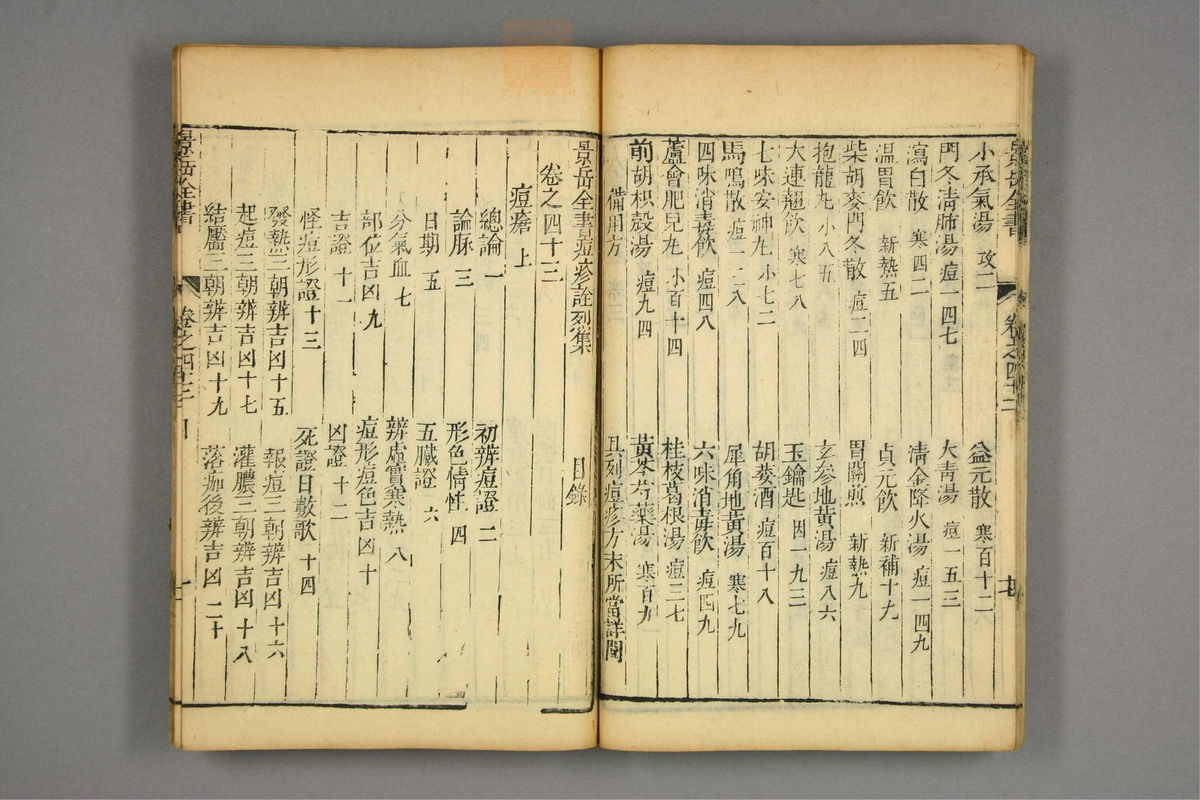 景岳全書 卷之四十二
小承氣湯 攻二 益元散 寒百十二
門冬清肺湯 痘一四七 大青湯 痘一五三
瀉白散 寒四二 清金降火湯 痘一四九
溫胃飲 新熱五 貞元飲 新補十九
柴胡麥門冬散 痘一四 胃關煎 新熱九
抱龍丸 小八五 玄參地黃湯 痘八六
大連翹飲 寒七八 玉鑰匙 因一九三
七味安神丸 小七二 胡荽酒 痘百十八
馬鳴散 痘一二八 犀角地黃湯 寒七九
四味消毒飲 痘四八 六味消毒飲 痘四九
蘆會肥兒丸 小百十四 桂枝葛根湯 痘三七
前胡枳殼湯 痘九四 黃芩芍藥湯 寒百九
備用方 具列痘疹方末所當詳閱
景岳全書痘疹詮烈集 目錄
卷之四十三
痘瘡 上
總論 一 初辨痘證 二
論脉 三 形色情性 四
日期 五 五臟證 六
分氣血 七 辨虛實寒熱 八
部位吉凶 九 痘形痘色吉凶 十
吉證 十一 凶證 十二
怪痘形證 十三 死證日數歌 十四
發熱三朝辨吉凶 十五 報痘三朝辨吉凶 十六
起痘三朝辨吉凶 十七 灌膿三朝辨吉凶 十八
結靨三朝辨吉凶 十九 落痂後辨吉凶 二十
景岳全書 卷之四十三